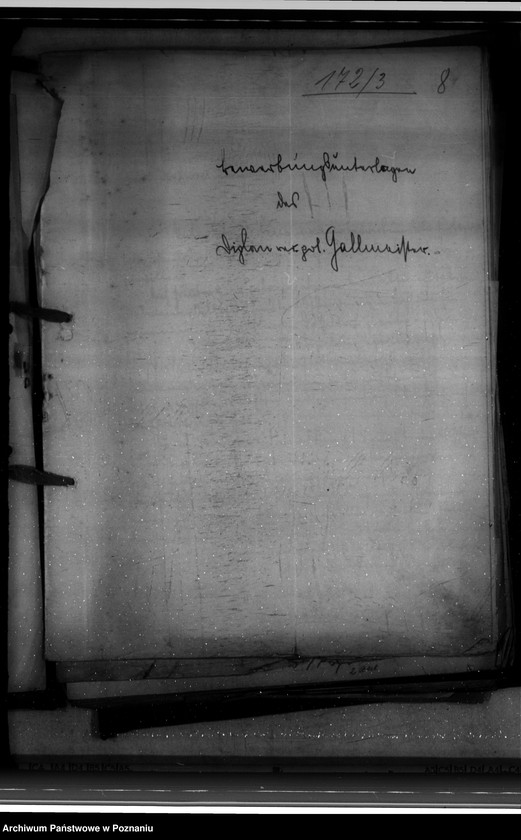 172/3 8
Bewerbungsunterlagen
des
Diplom rer. pol. Gallmeister.
Archiwum Państwowe w Poznaniu